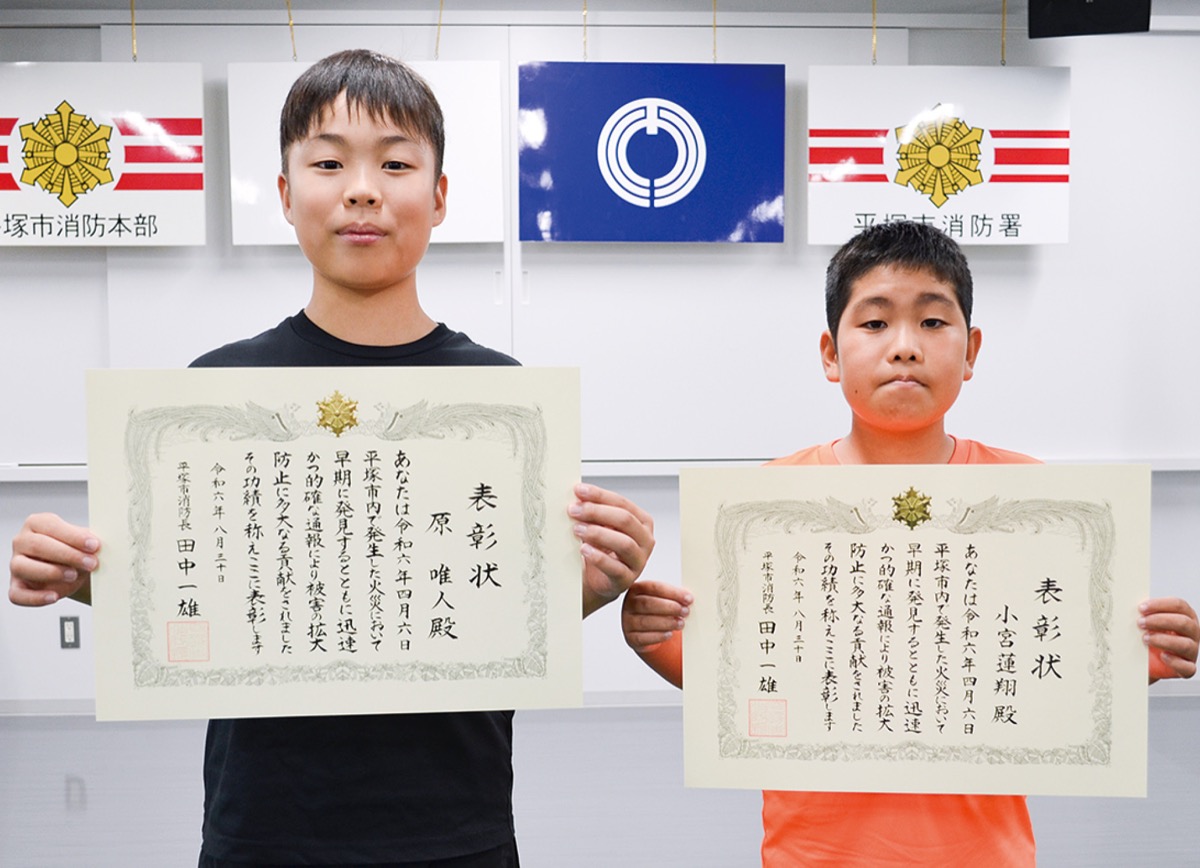 平塚市消防本部
平塚市消防署
表彰状
原 唯人殿
あなたは令和六年四月六日
平塚市内で発生した火災において
早期に発見するとともに迅速
かつ的確な通報により被害の拡大
防止に多大なる貢献をされました
その功績を称えここに表彰します
令和六年八月三十日
平塚市消防長 田中一雄
表彰状
小宮蓮翔殿
あなたは令和六年四月六日
平塚市内で発生した火災において
早期に発見するとともに迅速
かつ的確な通報により被害の拡大
防止に多大なる貢献をされました
その功績を称えここに表彰します
令和六年八月三十日
平塚市消防長 田中一雄